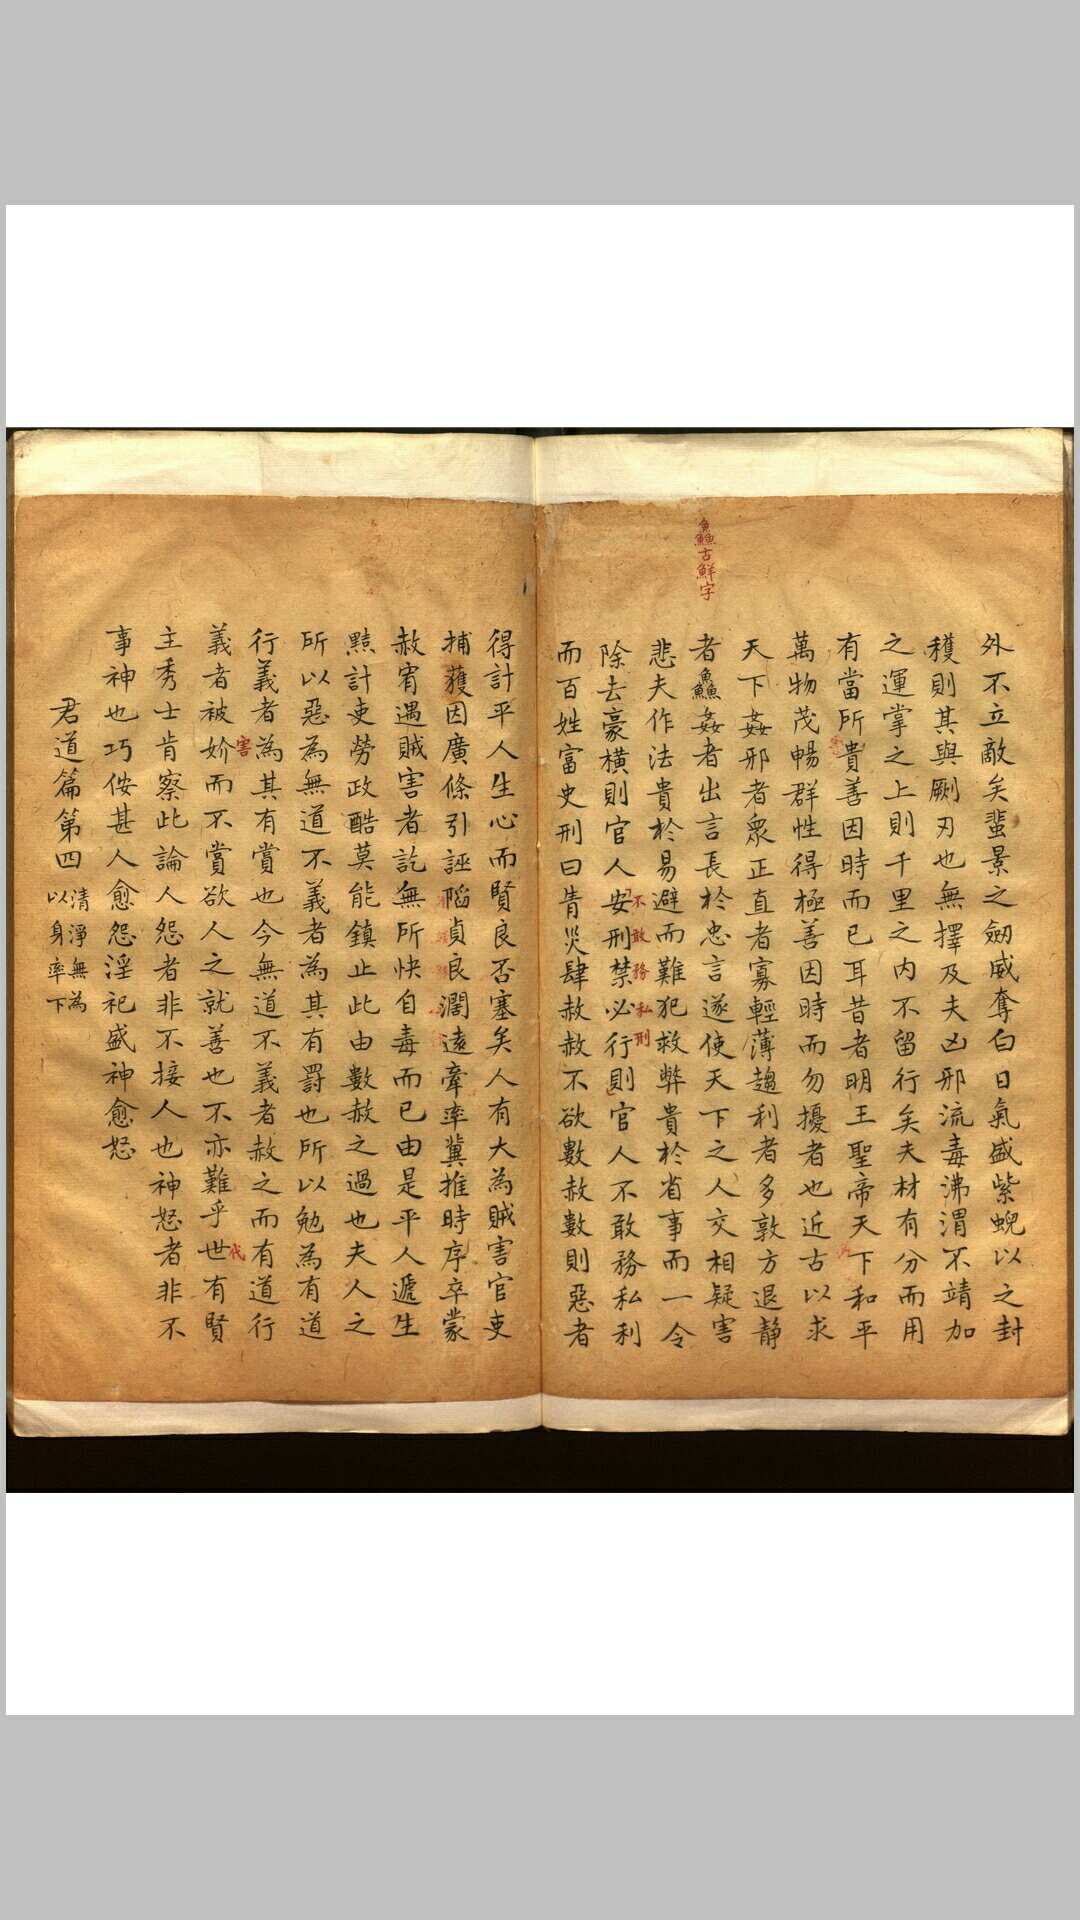 鱻古鮮字
外不立敵矣蜚景之劒威奪白日氣盛紫蜺以之封
穫則其與劂刃也無擇及夫凶邪流毒沸渭不靖加
之運掌之上則千里之內不留行矣夫材有分而用
有當所貴善因時而已耳昔者明王聖帝天下和平
萬物茂暢群性得極善因時而勿擾者也近古以求
天下姦邪者衆正直者寡輕薄趨利者多敦方退靜
者鱻姦者出言長於忠言遂使天下之人交相疑害
悲夫作法貴於易避而難犯救弊貴於省事而一令
除去豪橫則官人安刑禁必行則官人不敢務私利
不敢務私刑
而百姓富史刑曰眚災肆赦赦不欲數赦數則惡者
得計平人生心而賢良否塞矣人有大為賊害官吏
捕獲因廣條引誣陷貞良濶遠牽率冀推時序卒蒙
赦宥遇賊害者訖無所快自毒而已由是平人遞生
黠計吏勞政酷莫能鎮止此由數赦之過也夫人之
所以惡為無道不義者為其有罰也所以勉為有道
行義者為其有賞也今無道不義者赦之而有道行
害
代
義者被妎而不賞欲人之就善也不亦難乎世有賢
主秀士肯察此論人怨者非不接人也神怒者非不
事神也巧侫甚人愈怨淫祀盛神愈怒
君道篇第四
清淨無為
以身率下